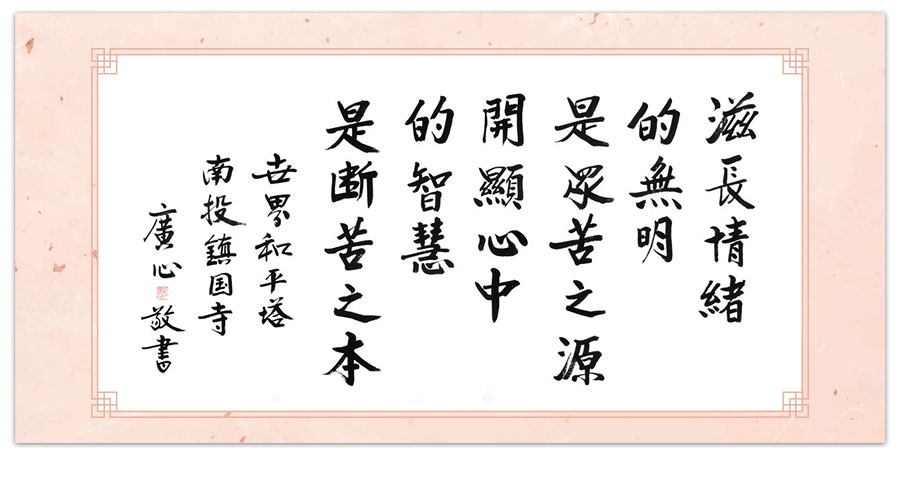 滋長情緒
的無明
是眾苦之源
開顯心中
的智慧
是断苦之本
世界和平塔
南投鎮国寺
廣心
敬書